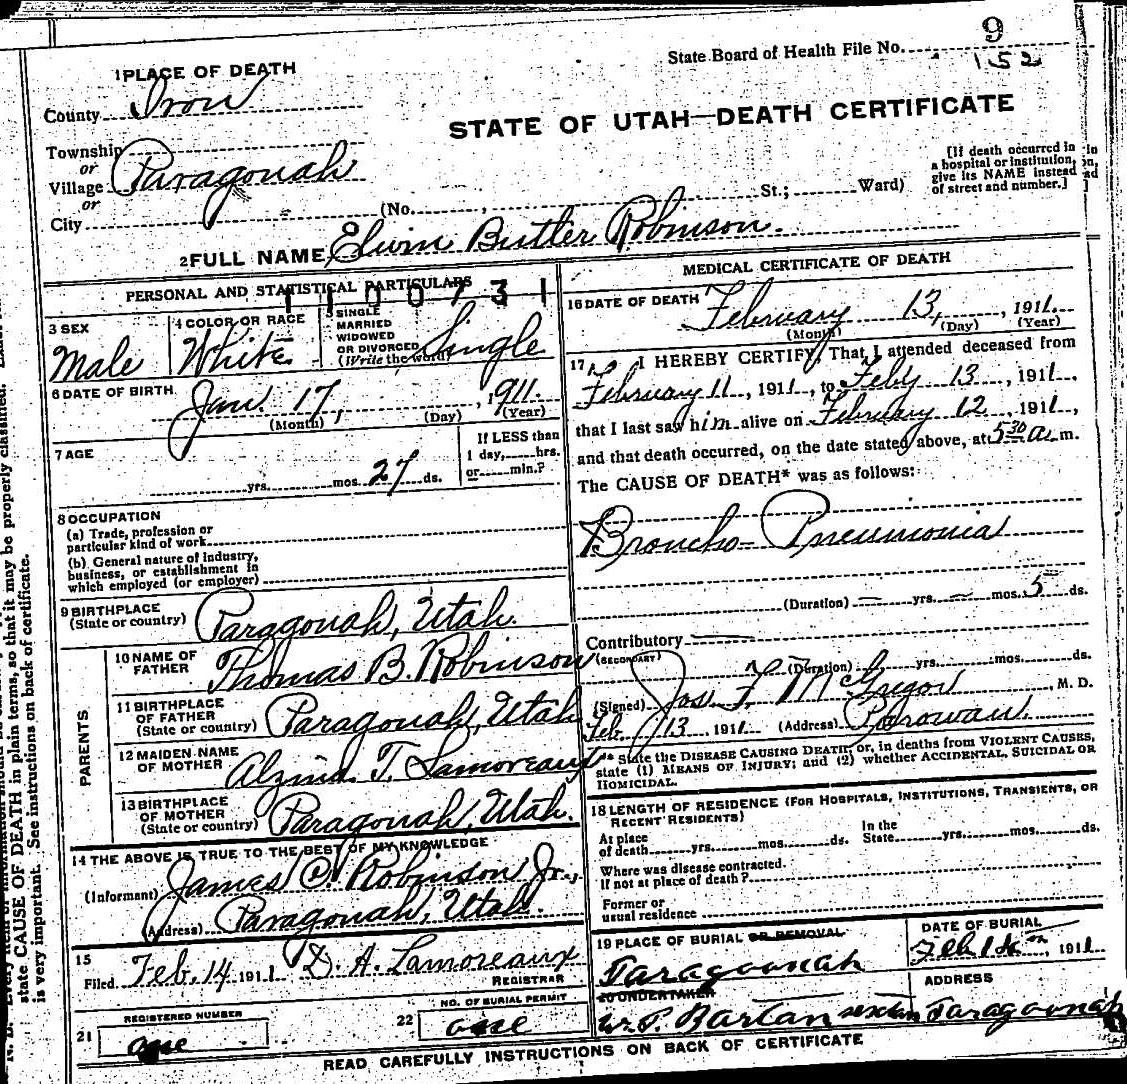 9
State Board of Health File No. 152
1 PLACE OF DEATH
County Iron
STATE OF UTAH—DEATH CERTIFICATE
Township
or
Village Paragonah
or
City (No. , St.; Ward)
[If death occurred in
a hospital or institution,
give its NAME instead
of street and number.]
2 FULL NAME Elwin Butler Robinson.
PERSONAL AND STATISTICAL PARTICULARS
1100731
3 SEX
Male
4 COLOR OR RACE
White
5 SINGLE
MARRIED
WIDOWED
OR DIVORCED
(Write the word)
Single
6 DATE OF BIRTH
Jan. 17, , 1911.
(Month) (Day) (Year)
7 AGE
yrs. mos. 27 ds.
If LESS than
1 day, hrs.
or min.?
8 OCCUPATION
(a) Trade, profession or
particular kind of work
(b) General nature of industry,
business, or establishment in
which employed (or employer)
9 BIRTHPLACE
(State or country) Paragonah, Utah.
PARENTS
10 NAME OF
FATHER Thomas B. Robinson
11 BIRTHPLACE
OF FATHER
(State or country) Paragonah, Utah
12 MAIDEN NAME
OF MOTHER Alzina T. Lamoreaux
13 BIRTHPLACE
OF MOTHER
(State or country) Paragonah, Utah.
14 THE ABOVE IS TRUE TO THE BEST OF MY KNOWLEDGE
(Informant) James C. Robinson Jr.,
(Address) Paragonah, Utah.
15
Filed Feb. 14 1911 D. A. Lamoreaux
REGISTRAR
21 REGISTERED NUMBER
one
22 NO. OF BURIAL PERMIT
one
MEDICAL CERTIFICATE OF DEATH
16 DATE OF DEATH
February 13, , 1911.
(Month) (Day) (Year)
17 I HEREBY CERTIFY, That I attended deceased from
February 11, 1911, to Feby 13, 1911,
that I last saw him alive on February 12, 1911,
and that death occurred, on the date stated above, at 5 30 a. m.
The CAUSE OF DEATH* was as follows:
Broncho-Pneumonia
(Duration) — yrs. — mos. 5 ds.
Contributory
(SECONDARY)
(Duration) yrs. mos. ds.
(Signed) Jos. F. McGregor, M. D.
Feb. 13, 1911 (Address) Parowan.
** State the DISEASE CAUSING DEATH, or, in deaths from VIOLENT CAUSES,
state (1) MEANS OF INJURY; and (2) whether ACCIDENTAL, SUICIDAL OR
HOMICIDAL.
18 LENGTH OF RESIDENCE (FOR HOSPITALS, INSTITUTIONS, TRANSIENTS, OR
RECENT RESIDENTS)
At place
of death yrs. mos. ds.
In the
State yrs. mos. ds.
Where was disease contracted.
if not at place of death?
Former or
usual residence
19 PLACE OF BURIAL OR REMOVAL
Paragoonah
DATE OF BURIAL
Feb 14, 1911
20 UNDERTAKER
Wm. P. Bartan sextan
ADDRESS
Paragoonah
READ CAREFULLY INSTRUCTIONS ON BACK OF CERTIFICATE
state CAUSE OF DEATH in plain terms, so that it may be properly classified.
is very important. See instructions on back of certificate.